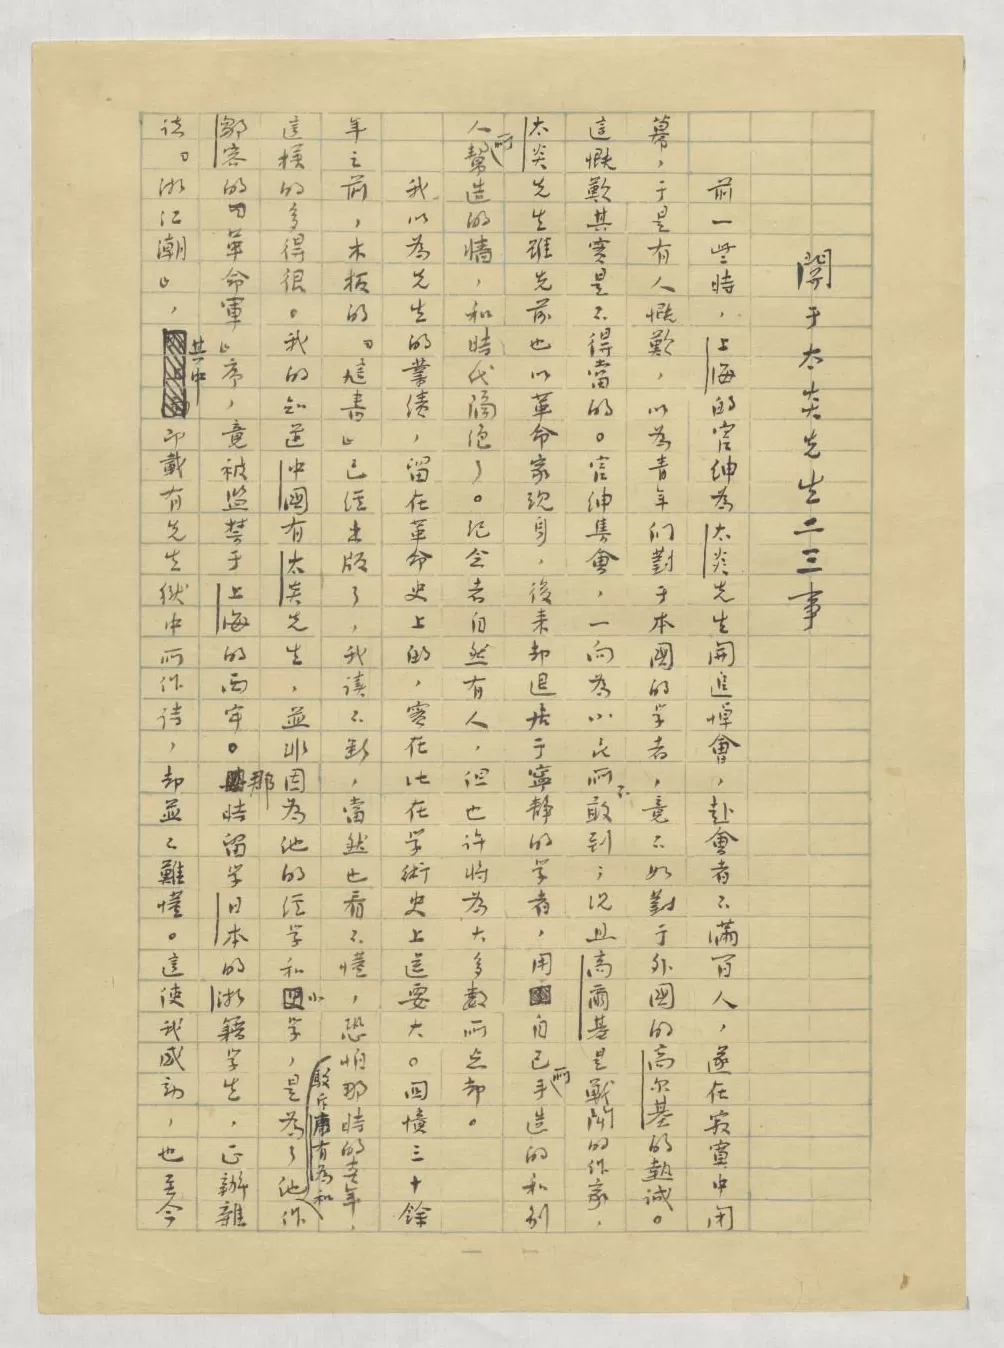 關于太炎先生二三事
前一些時，上海的官紳為太炎先生開追悼會，赴會者不滿百人，遂在寂寞中閉
幕，于是有人慨歎，以為青年們對于本國的学者，竟不如對于外國的高尔基的熱誠。
這慨歎其實是不得當的。官紳集會，一向為小民所不敢到；况且高爾基是戰鬥的作家，
太炎先生雖先前也以革命家現身，後来却退居于寧靜的学者，用自己所手造的和别
人所幫造的牆，和時代隔絶了。紀念者自然有人，但也许将為大多數所忘却。
我以為先生的業績，留在革命史上的，實在比在学術史上還要大。回憶三十餘
年之前，木板的『訄書』已經出版了，我读不断，當然也看不懂，恐怕那時的青年，
這樣的多得很。我的知道中國有太炎先生，並非因為他的經学和小学，是為了他駁斥康有為和作
鄒容的『革命軍』序，竟被监禁于上海的西牢。那時留学日本的浙籍学生，正辦雜
誌『浙江潮』，其中即載有先生獄中所作詩，却並不難懂。這使我感動，也至今
一